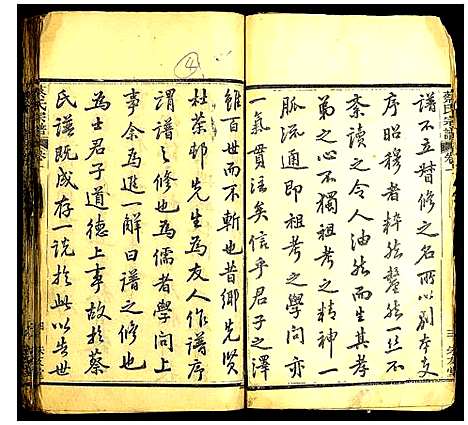 蔡氏宗譜
卷一
譜不立譜修之名所以别本支
序昭穆者粹然釐然一丝不
紊读之令人油然而生其孝
弟之心不獨祖考之精神一
脈流通即祖考之學问亦
一氣貫注矣信乎君子之澤
雖百世而不斬也昔鄉先贤
杜茶邨先生為友人作譜序
谓譜之修也為儒者學问上
事余為進一解曰譜之修也
為士君子道德上事故於蔡
氏譜既成存一说於此以告世
蔡氏宗譜
④